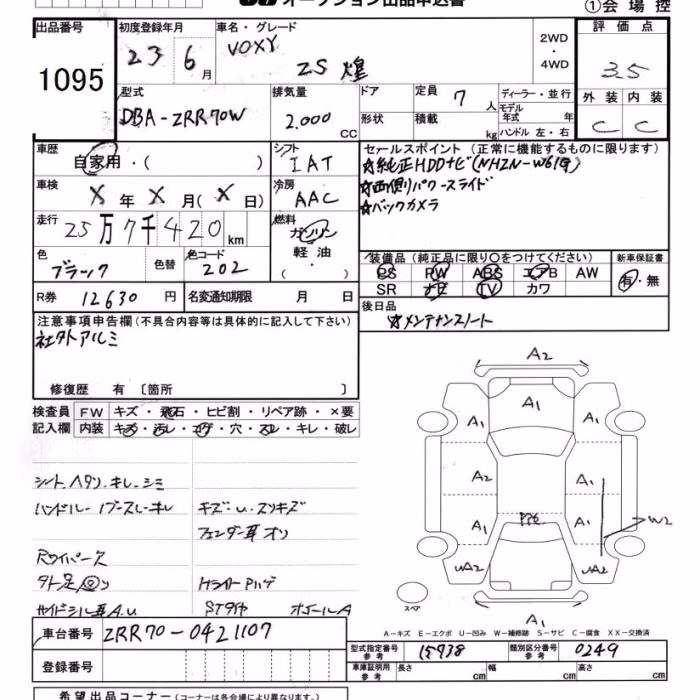 オークション出品申込書
①会場控
出品番号 1095
初度登録年月 23 6月
車名・グレード VOXY ZS 煌
2WD・4WD
評価点 3.5
外装 C 内装 C
型式 DBA-ZRR70W
排気量 2.000 CC
ドア 形状
定員 7人
積載 kg
ディーラー・並行
モデル年式 年
ハンドル 左・右
車歴 自家用・( )
シフト IAT
車検 X年X月(X)日
冷房 AAC
走行 25万7千420km
燃料 ガソリン 軽油 ( ・ )
色 ブラック
色替
色コード 202
R券 12630円
名変通知期限 月 日
セールスポイント(正常に機能するものに限ります)
☆純正HDDナビ(NHZN-W61G)
☆両側パワースライド
☆バックカメラ
装備品(純正品に限り○をつけてください)
PS PW ABS エアB AW
SR ナビ TV カワ
新車保証書 有・無
後日品 ☆メンテナンスノート
注意事項申告欄(不具合内容等は具体的に記入して下さい)
社外アルミ
修復歴 有〔箇所 〕
検査員記入欄
FW キズ・飛石・ヒビ割・リペア跡・×要
内装 キズ・汚レ・コゲ・穴・スレ・キレ・破レ
シートヘタリ・キレ・シミ
キズ・U・スリキズ
Rワイパーナシ
A2
A1
A1
A1
A2
A1
A1
A1
W2
UA2
UA2
A1
スペア
A-キズ E-エクボ U-凹み W-補修跡 S-サビ C-腐食 XX-交換済
車台番号 ZRR70-0421107
登録番号
型式指定番号 参考 15738
類別区分番号 参考 0249
車庫証明用 参考 長さ cm 幅 cm 高さ cm
希望出品コーナー(コーナーは各会場により異なります。)